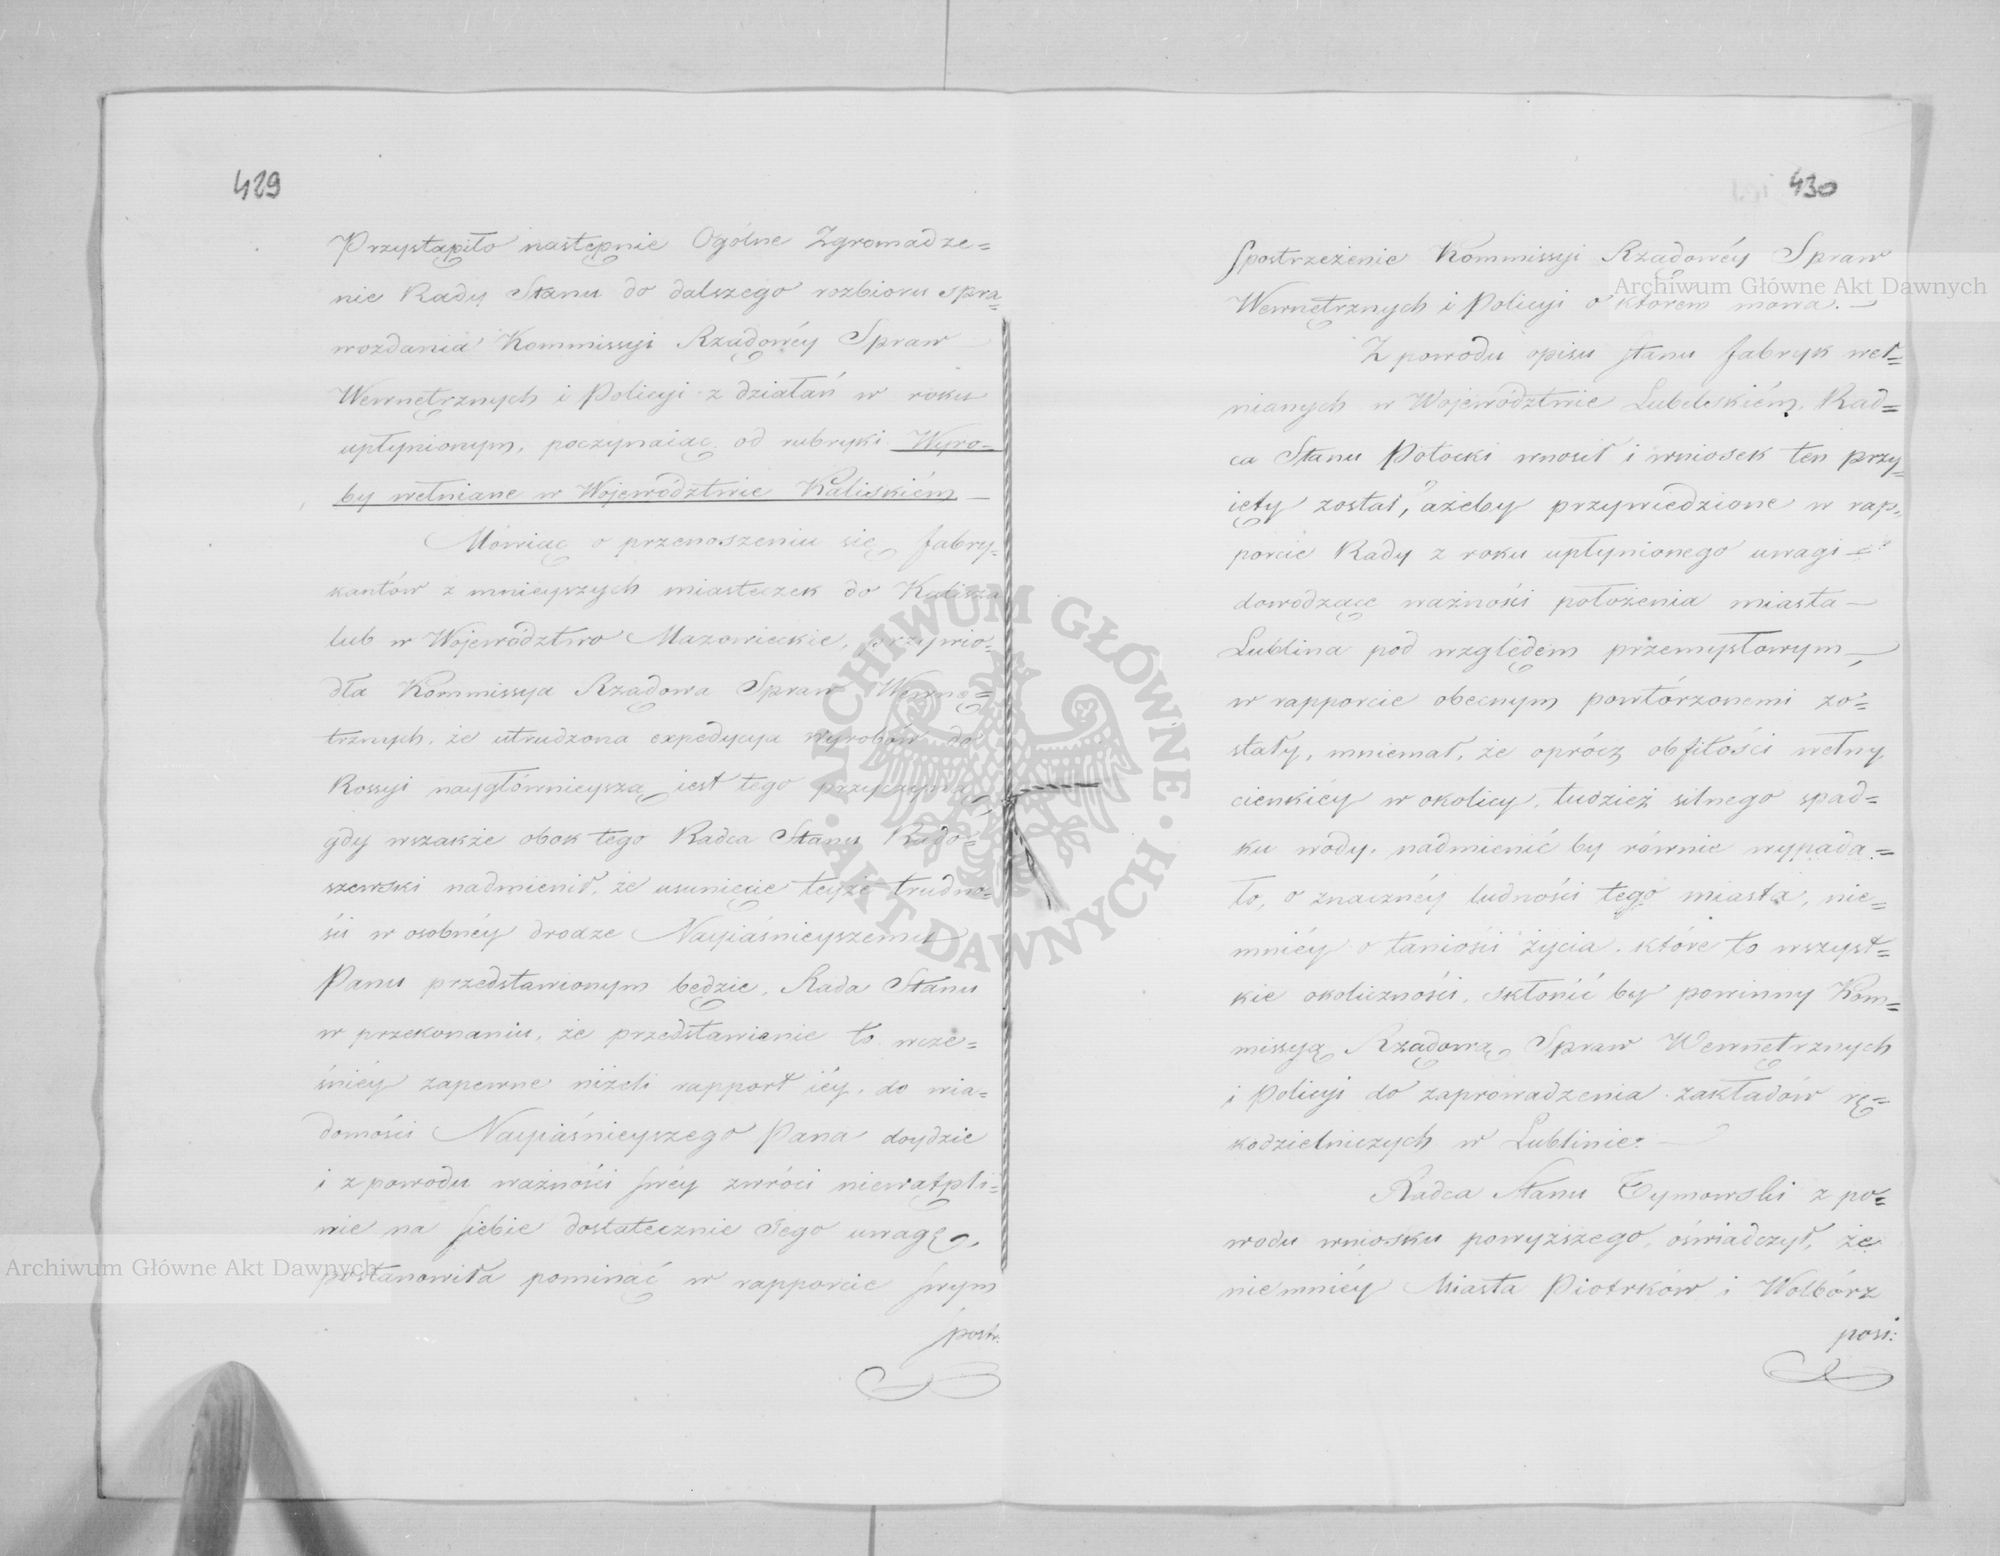 429
Przystąpiło następnie Ogólne Zgromadze=
nie Rady Stanu do dalszego rozbioru spra=
wozdania Kommissyi Rządowéy Spraw
Wewnętrznych i Policyi z działań w roku
upłynionym, poczynaiąc od rubryki Wyro=
by wełniane w Województwie Kaliskiém —
Mówiąc o przenoszeniu się fabry=
kantów z mnieyszych miasteczek do Kalisza
lub w Województwo Mazowieckie, przywio=
dła Kommissya Rządowa Spraw Wewnę=
trznych, że utrudzona expedycya wyrobów do
Rossyi naygłównieyszą iest tego przyczyną,
gdy wszakże obok tego Radca Stanu Rado=
szewski nadmienił, że usunięcie teyże trudno=
ści w osobnéy drodze Nayiaśnieyszemu
Panu przedstawionym będzie, Rada Stanu
w przekonaniu, że przedstawienie to wcze=
śniéy zapewne niżeli rapport iéy, do wia=
domości Nayiaśnieyszego Pana doydzie
i z powodu ważności swéy zwróci niewątpli=
wie na siebie dostatecznie Jego uwagę,
postanowiła pominąć w rapporcie swym
postr:
430
spostrzeżenie Kommissyi Rządowéy Spraw
Wewnętrznych i Policyi o którem mowa. —
Z powodu opisu stanu fabryk weł=
nianych w Województwie Lubelskiém, Rad=
ca Stanu Potocki wnosił i wniosek ten przy=
ięty został, ażeby przywiedzione w rap=
porcie Rady z roku upłynionego uwagi —
dowodzące ważności położenia miasta —
Lublina pod względem przemysłowym —,
w rapporcie obecnym powtórzonemi zo=
stały, mniemał, że oprócz obfitości wełny
cienkiéy w okolicy, tudzież silnego spad=
ku wody, nadmienić by równie wypada=
ło, o znacznéy ludności tego miasta, nie=
mniéy o taniości życia, które to wszyst=
kie okoliczności, skłonić by powinny Kom=
missyą Rządową Spraw Wewnętrznych
i Policyi do zaprowadzenia zakładów rę=
kodzielniczych w Lublinie. —
Radca Stanu Tymowski z po=
wodu wniosku powyższego, oświadczył, że
niemniéy Miasta Piotrków i Wolbórz
posi:
Archiwum Główne Akt Dawnych
Archiwum Główne Akt Dawnych
ARCHIWUM GŁÓWNE
AKT DAWNYCH